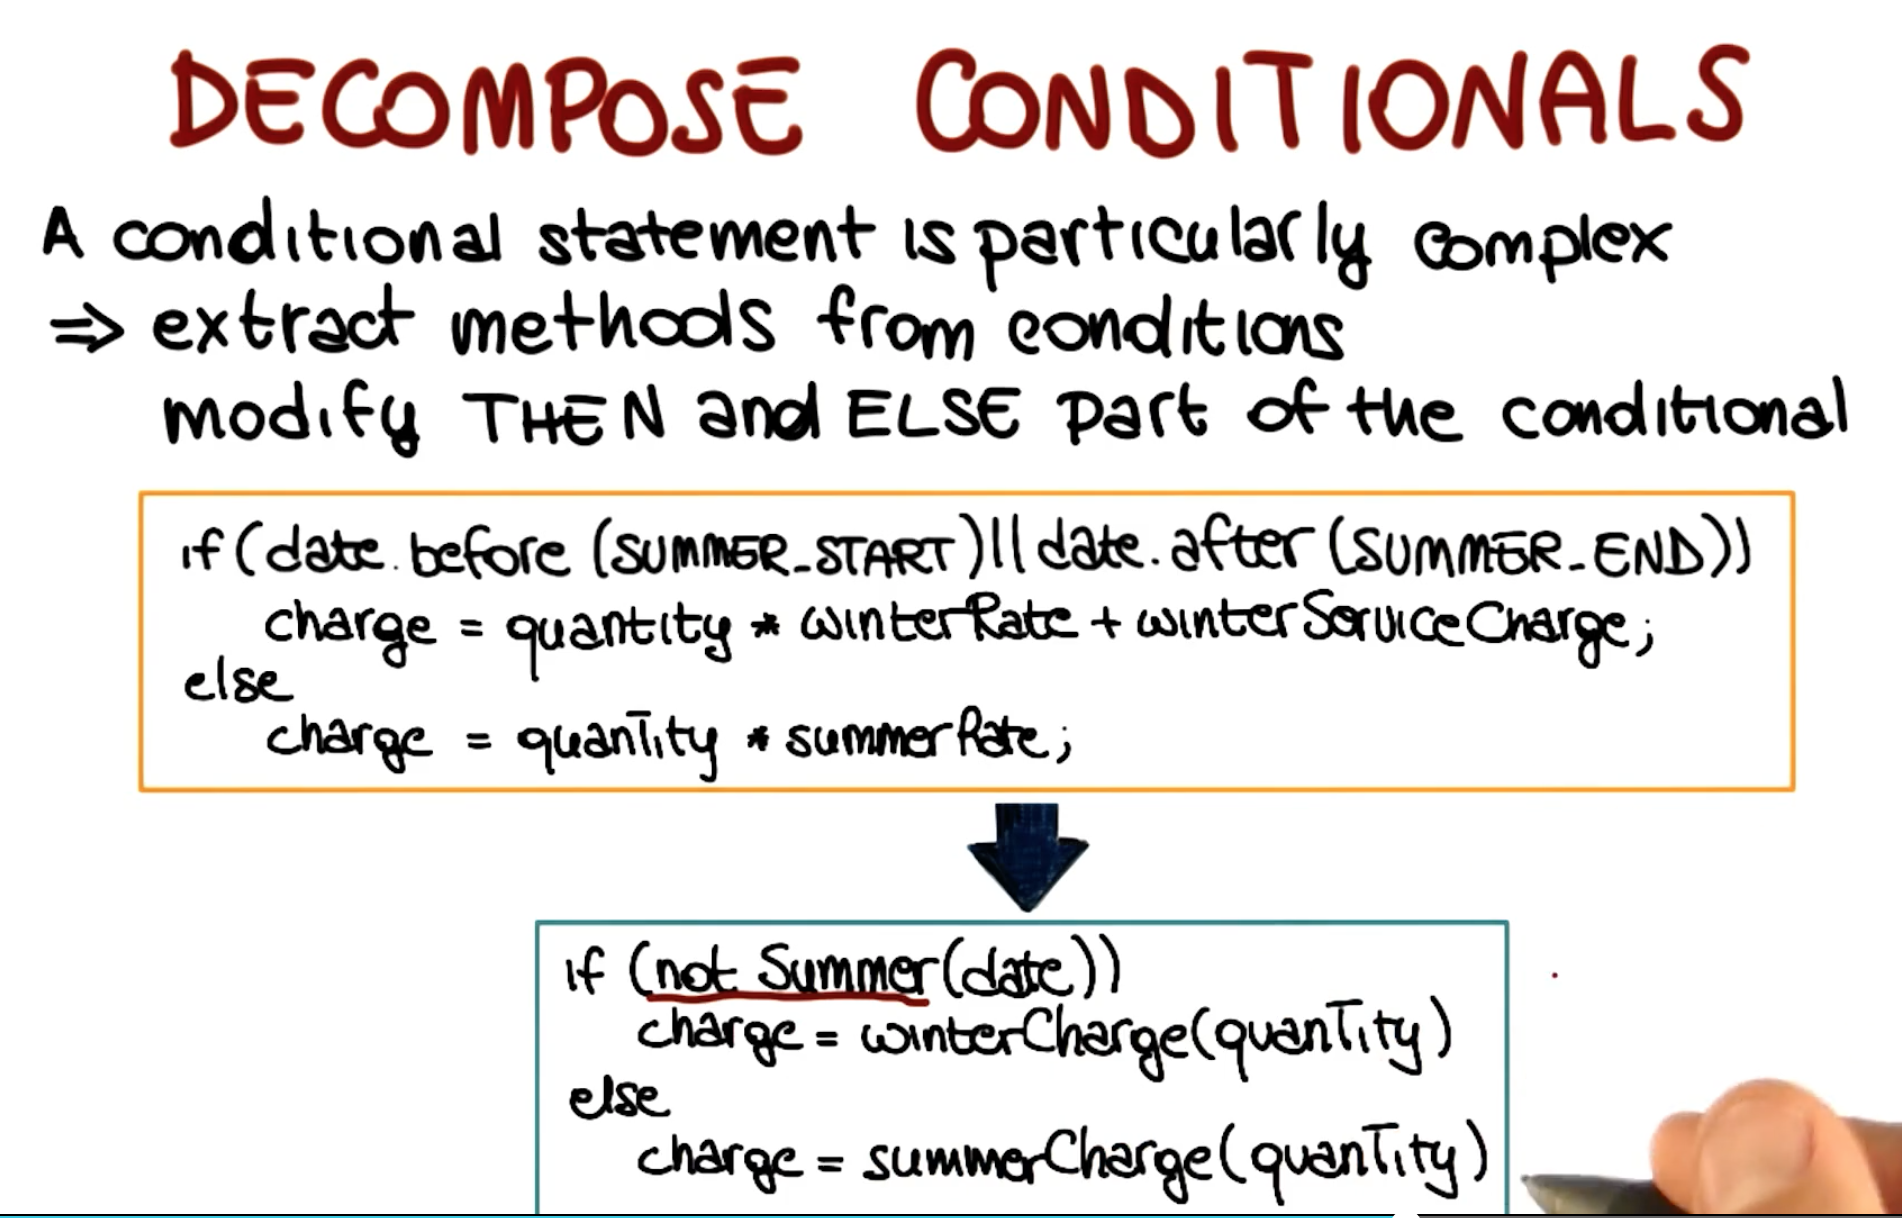 DECOMPOSE CONDITIONALS
A conditional statement is particularly complex
⇒ extract methods from conditions
modify THEN and ELSE part of the conditional
if (date.before (SUMMER_START) || date.after (SUMMER_END))
charge = quantity * winterRate + winterServiceCharge;
else
charge = quantity * summerRate;
if (not Summer (date))
charge = winterCharge(quantity)
else
charge = summerCharge(quantity)